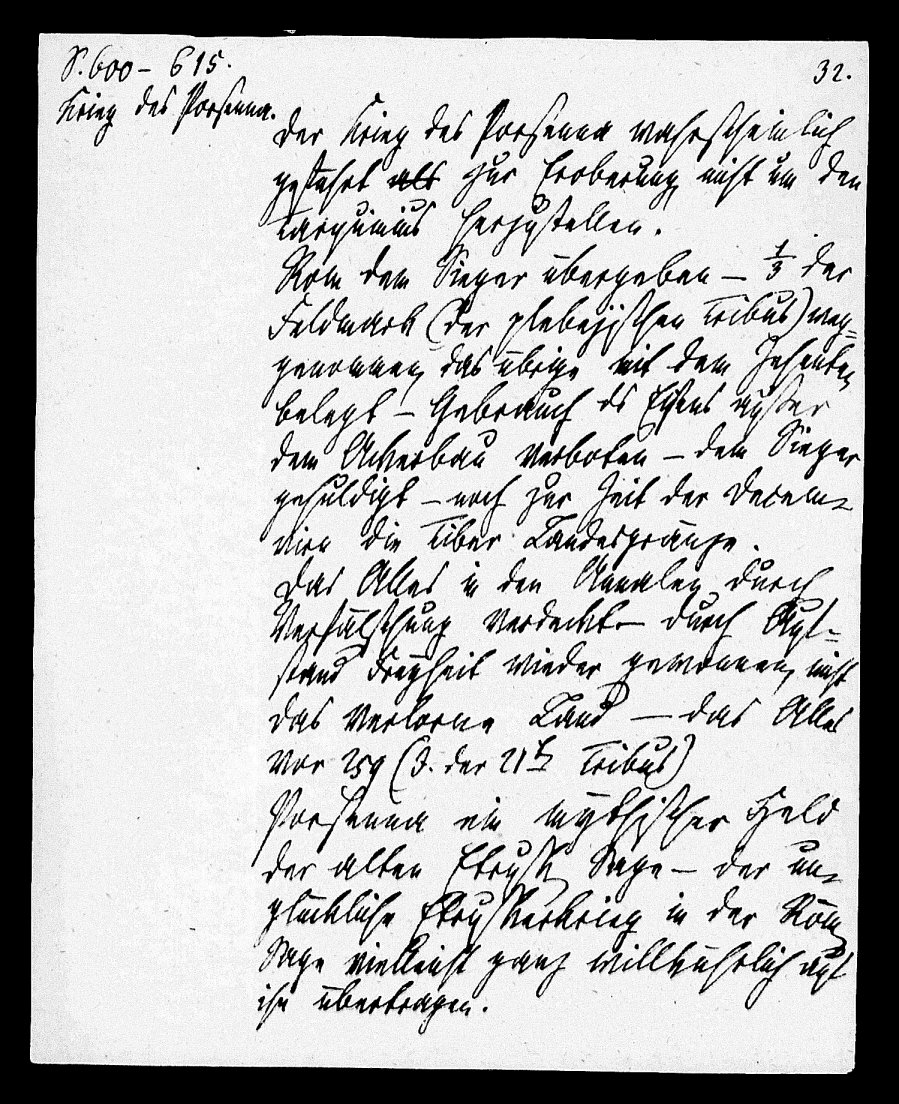 S. 600 – 615.
32.
Krieg des Porsenna.
Der Krieg des Porsenna wahrscheinlich
geführt als zur Eroberung, nicht um den
Tarquinius herzustellen.
Rom dem Sieger übergeben – 1/3 der
Feldmark (der plebejischen Tribus) weg-
genommen, das übrige mit dem Zehenten
belegt – Gebrauch ds Eisens außer
dem Ackerbau verboten – dem Sieger
gehuldigt – noch zur Zeit der Decem-
virn die Tiber Landesgränze.
Das Alles in den Annalen durch
Verfälschung verdeckt – durch Auf-
stand Freyheit wieder gewonnen, nicht
das verlorne Land – das Alles
vor 259 (J. der 21 Tribus)
Porsenna ein mythischer Held
der alten Etrusk. Sage – der un-
glückliche Etruskerkrieg in der Röm.
Sage vielleicht ganz willkührlich auf
ihn übertragen.